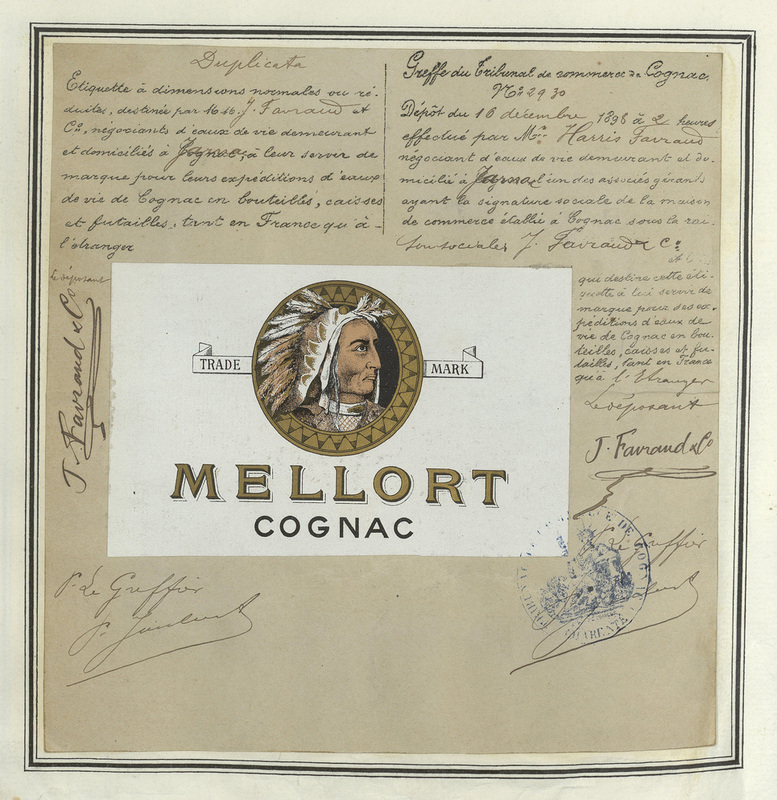 Duplicata
Etiquette à dimensions normales ou ré-
duites, destinée par MM. J. Favraud et
Cie, négociants d'eaux de vie demeurant
et domiciliés à Jarnac, à leur servir de
marque pour leurs expéditions d'eaux
de vie de Cognac en bouteilles, caisses
et futailles, tant en France qu'à
l'étranger
Greffe du Tribunal de commerce de Cognac,
No 2930
Dépôt du 16 décembre 1898 à 2 heures
effectué par Mr. Harris Favraud
négociant d'eaux de vie demeurant et do-
micilié à Jarnac l'un des associés gérants
ayant la signature sociale de la maison
de commerce établie à Cognac sous la rai-
son sociale, J. Favraud & Co
qui destine cette éti-
quette à lui servir de
marque pour ses ex-
péditions d'eaux de
vie de Cognac en bou-
teilles, caisses et fu-
tailles, tant en France
qu'à l'Etranger
Le déposant
J. Favraud & Co
le déposant
J. Favraud & Co
TRADE MARK
MELLORT
COGNAC
P. Le Greffier
P. Le Greffier
DE COGNAC
CHARENTE